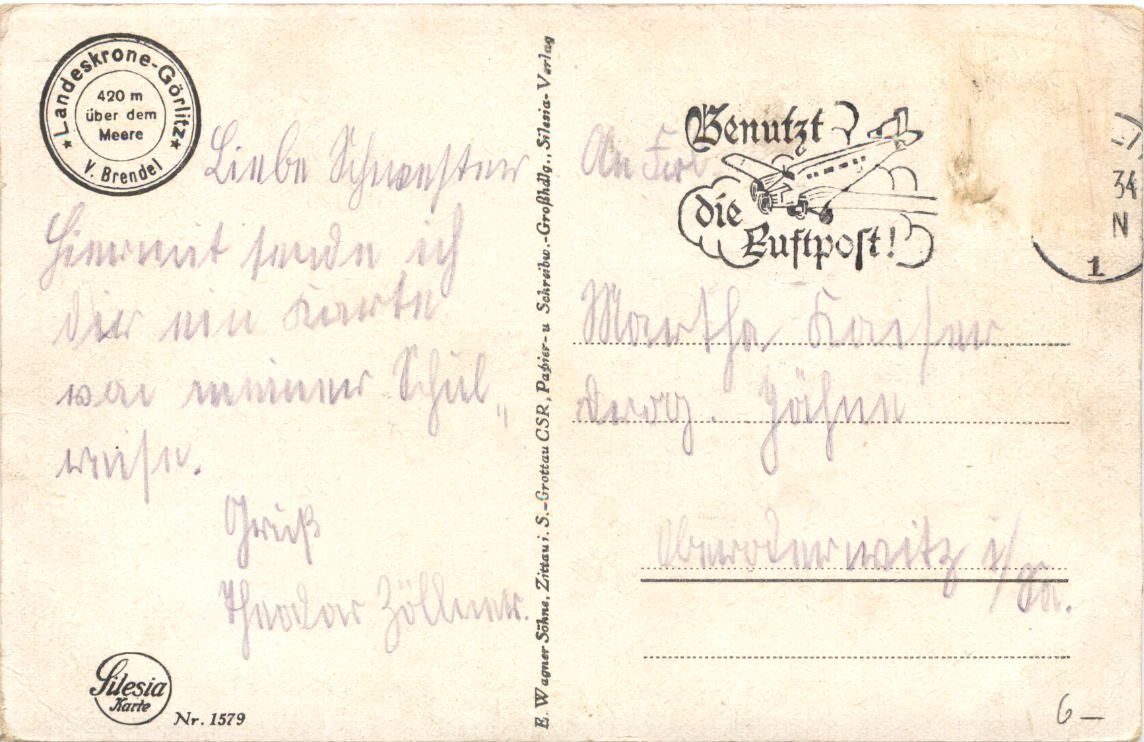 Landeskrone-Görlitz
420 m
über dem
Meere
V. Brendel
Liebe Schwester
Hiermit sende ich
dir ein Karte
von meiner Schul„
reise.
Gruß
Theodor Zöllner.
Silesia
Karte
Nr. 1579
E. Wagner Söhne, Zittau i. S.-Grottau CSR, Papier- u Schreibw.-Großhdlg., Silesia-Verlag
Benutzt
die
Luftpost!
34
N
1
An Frl.
Martha Kaiser
Jähne
Oberoderwitz i/
Sa.
6 —